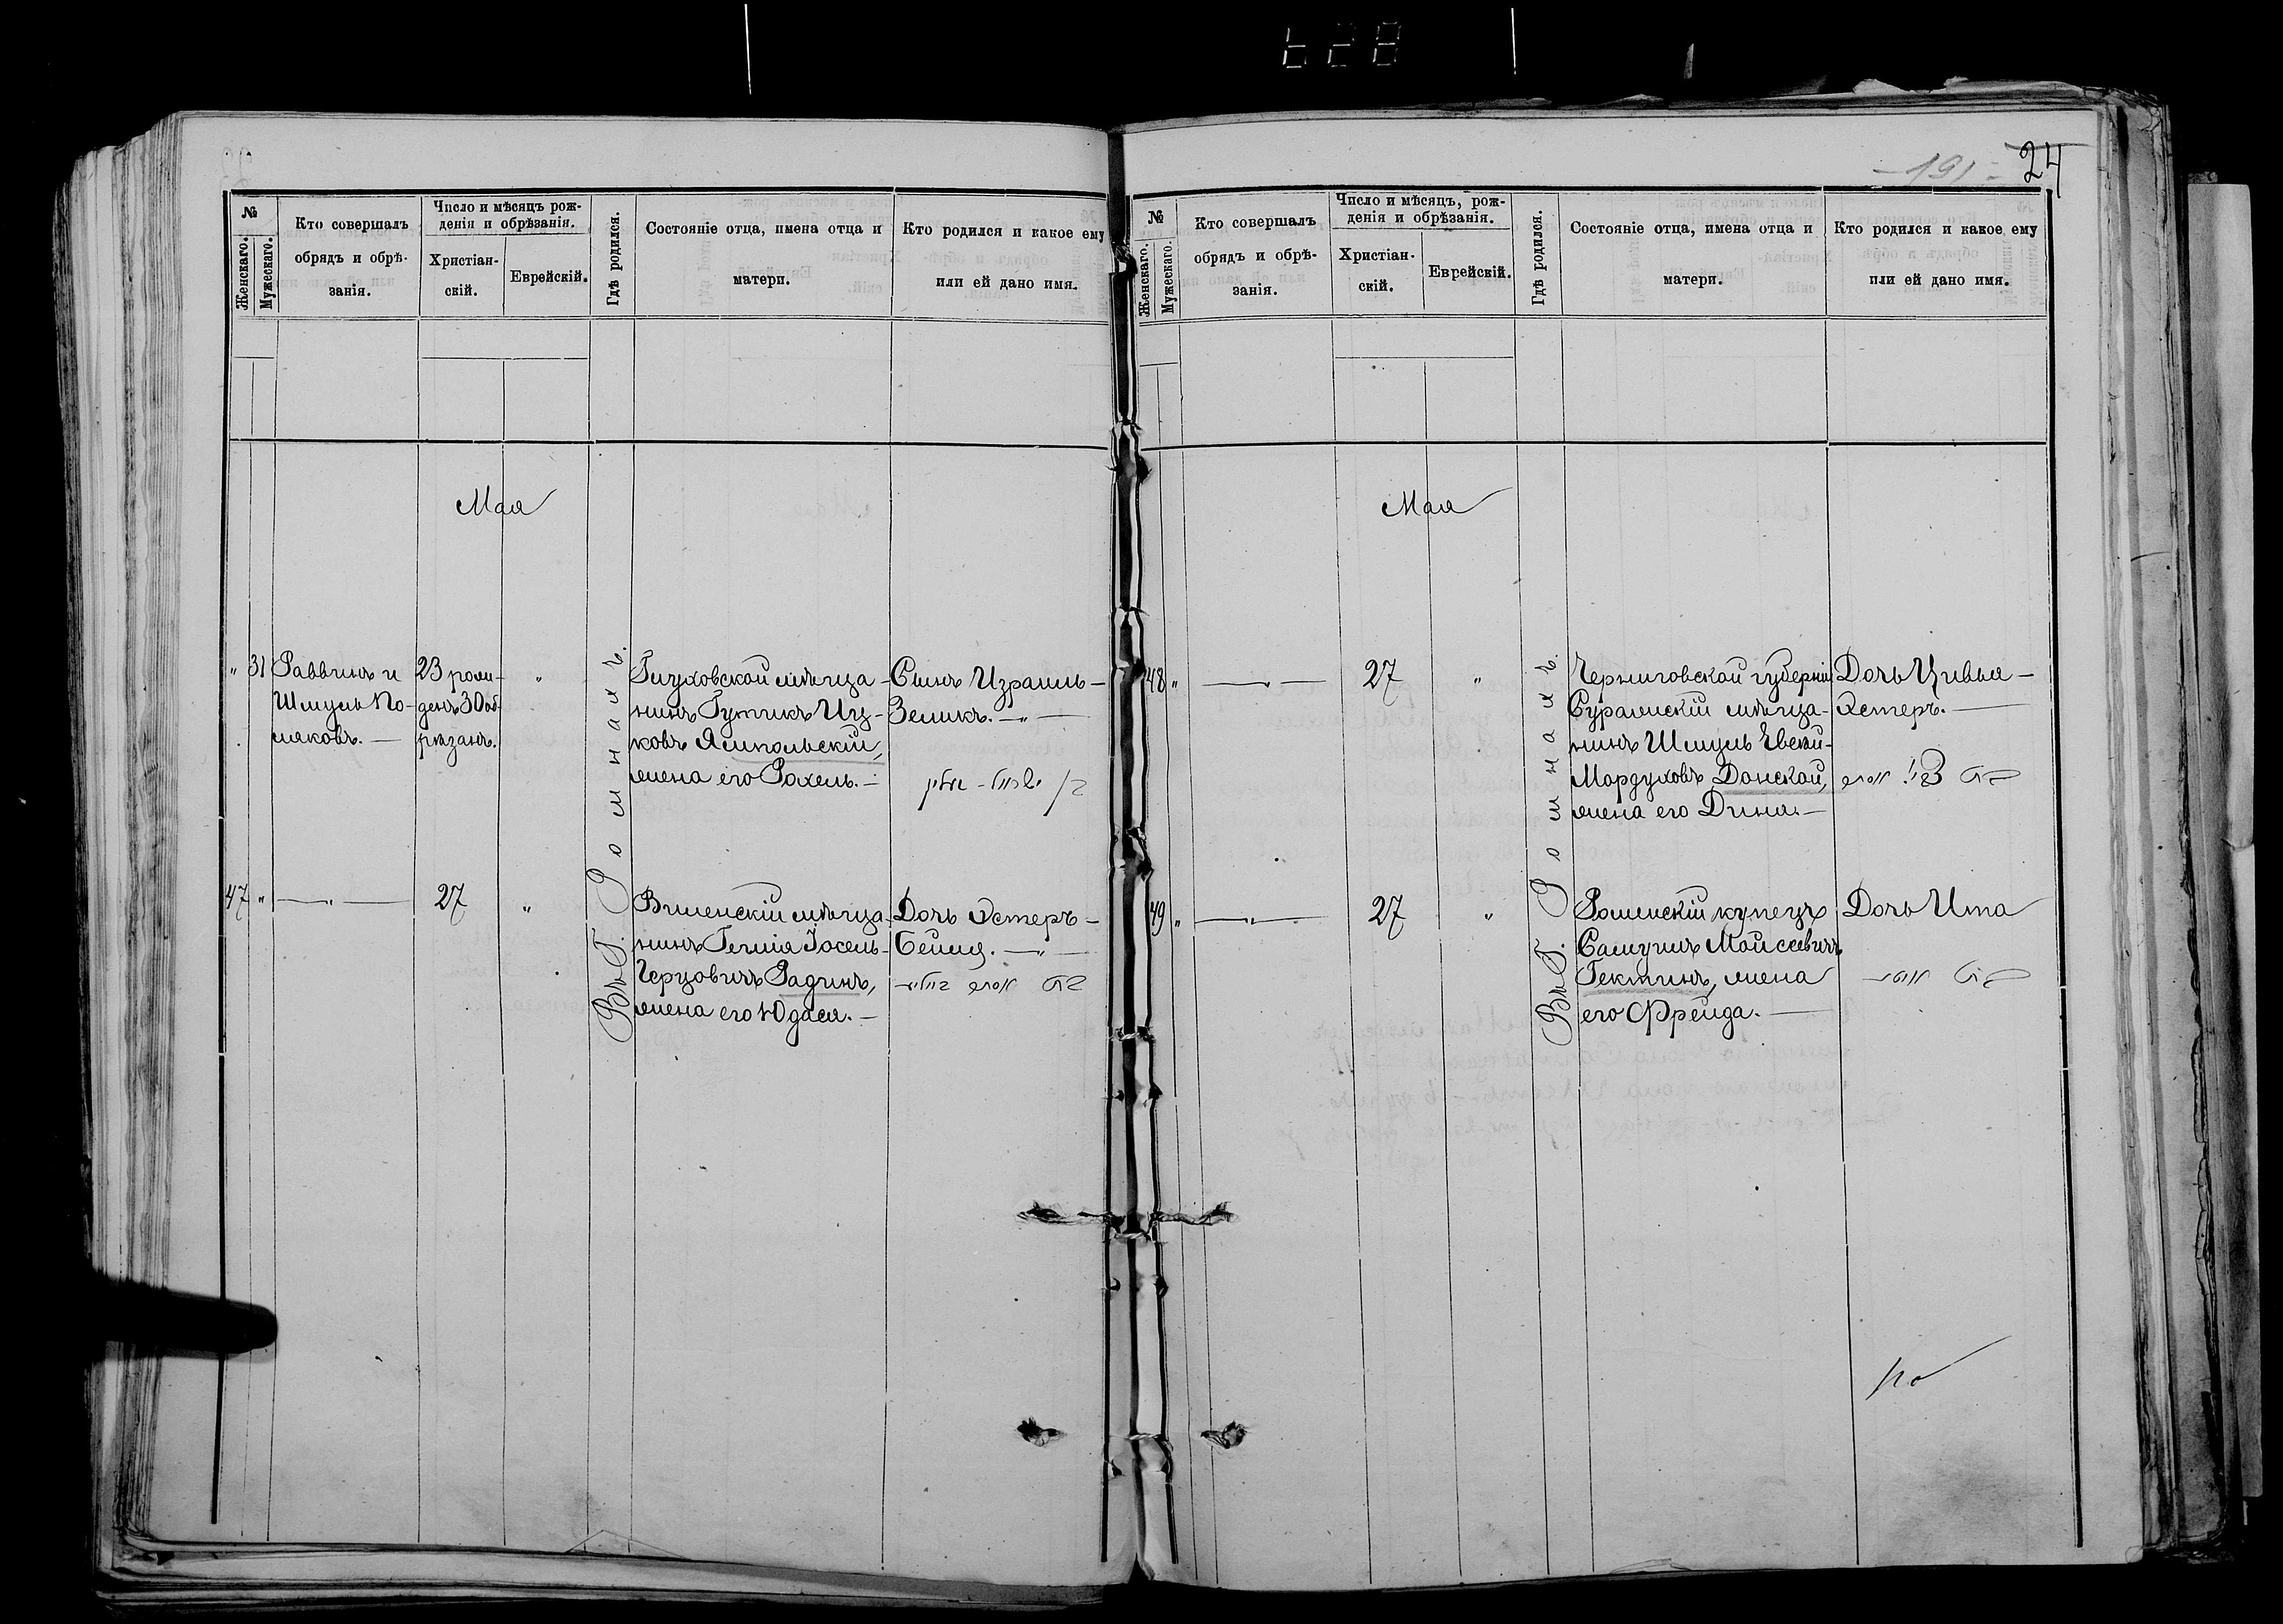 828
- 191 -
24
№
Женскаго.
Мужескаго.
Кто совершалъ
обрядъ и обрѣ-
занія.
Число и мѣсяцъ рож-
денія и обрѣзанія.
Христіан-
скій.
Еврейскій.
Гдѣ родился.
Состояніе отца, имена отца и
матери.
Кто родился и какое ему
или ей дано имя.
Мая
" 31
Раввинъ и
Шмуль По-
ляковъ. —
23 рож-
денъ 30 об-
рѣзанъ.
"
Въ Г. Ромнахъ.
Глуховской мѣща-
нинъ Гутикъ Иц-
ковъ Ямпольскій,
жена его Рохель. —
Сынъ Израиль-
Зеликъ. — " —
47 "
— " —
27
"
Виленскій мѣща-
нинъ Іосель-
Герцовичъ Радинъ,
жена его Юдася. —
Дочь Эстеръ-
Бейля. — " —
בת אסתר ביילא
№
Женскаго.
Мужескаго.
Кто совершалъ
обрядъ и обрѣ-
занія.
Число и мѣсяцъ, рож-
денія и обрѣзанія.
Христіан-
скій.
Еврейскій.
Гдѣ родился.
Состояніе отца, имена отца и
матери.
Кто родился и какое ему
или ей дано имя.
Мая
48 "
— " —
27
"
Въ Г. Ромнахъ.
Черниговской губерніи
Суражскій мѣща-
нинъ Шмуль
Мордуховъ Донской,
жена его Дина. —
Дочь Цивья —
Эстеръ. —
49 "
— " —
27
"
Роменскій купецъ
Самуилъ Моисеевичъ
Гектинъ, жена
его Фрейда. —
Дочь Ита